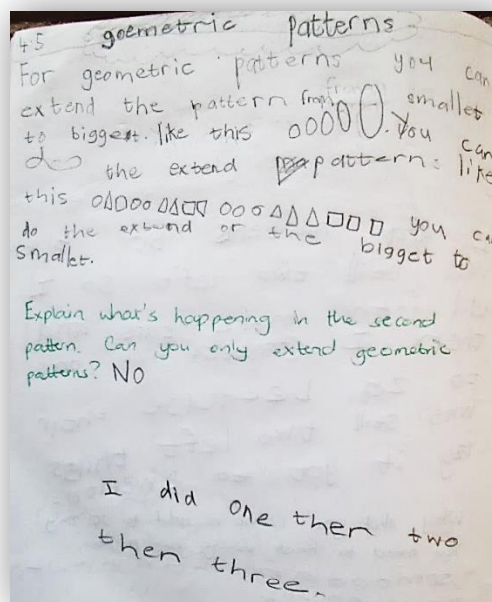 4.5 goemetric patterns
For geometric patterns you can
extend the pattern from smallet
to biggest. like this OOOOO. You can
do the extend pattern: like
this O△□OO△△□□ OOO△△△□□□ you ca
do the extend or the bigget to
smallet.
Explain what's happening in the second
pattern. Can you only extend geometric
patterns? No
I did one then two
then three.